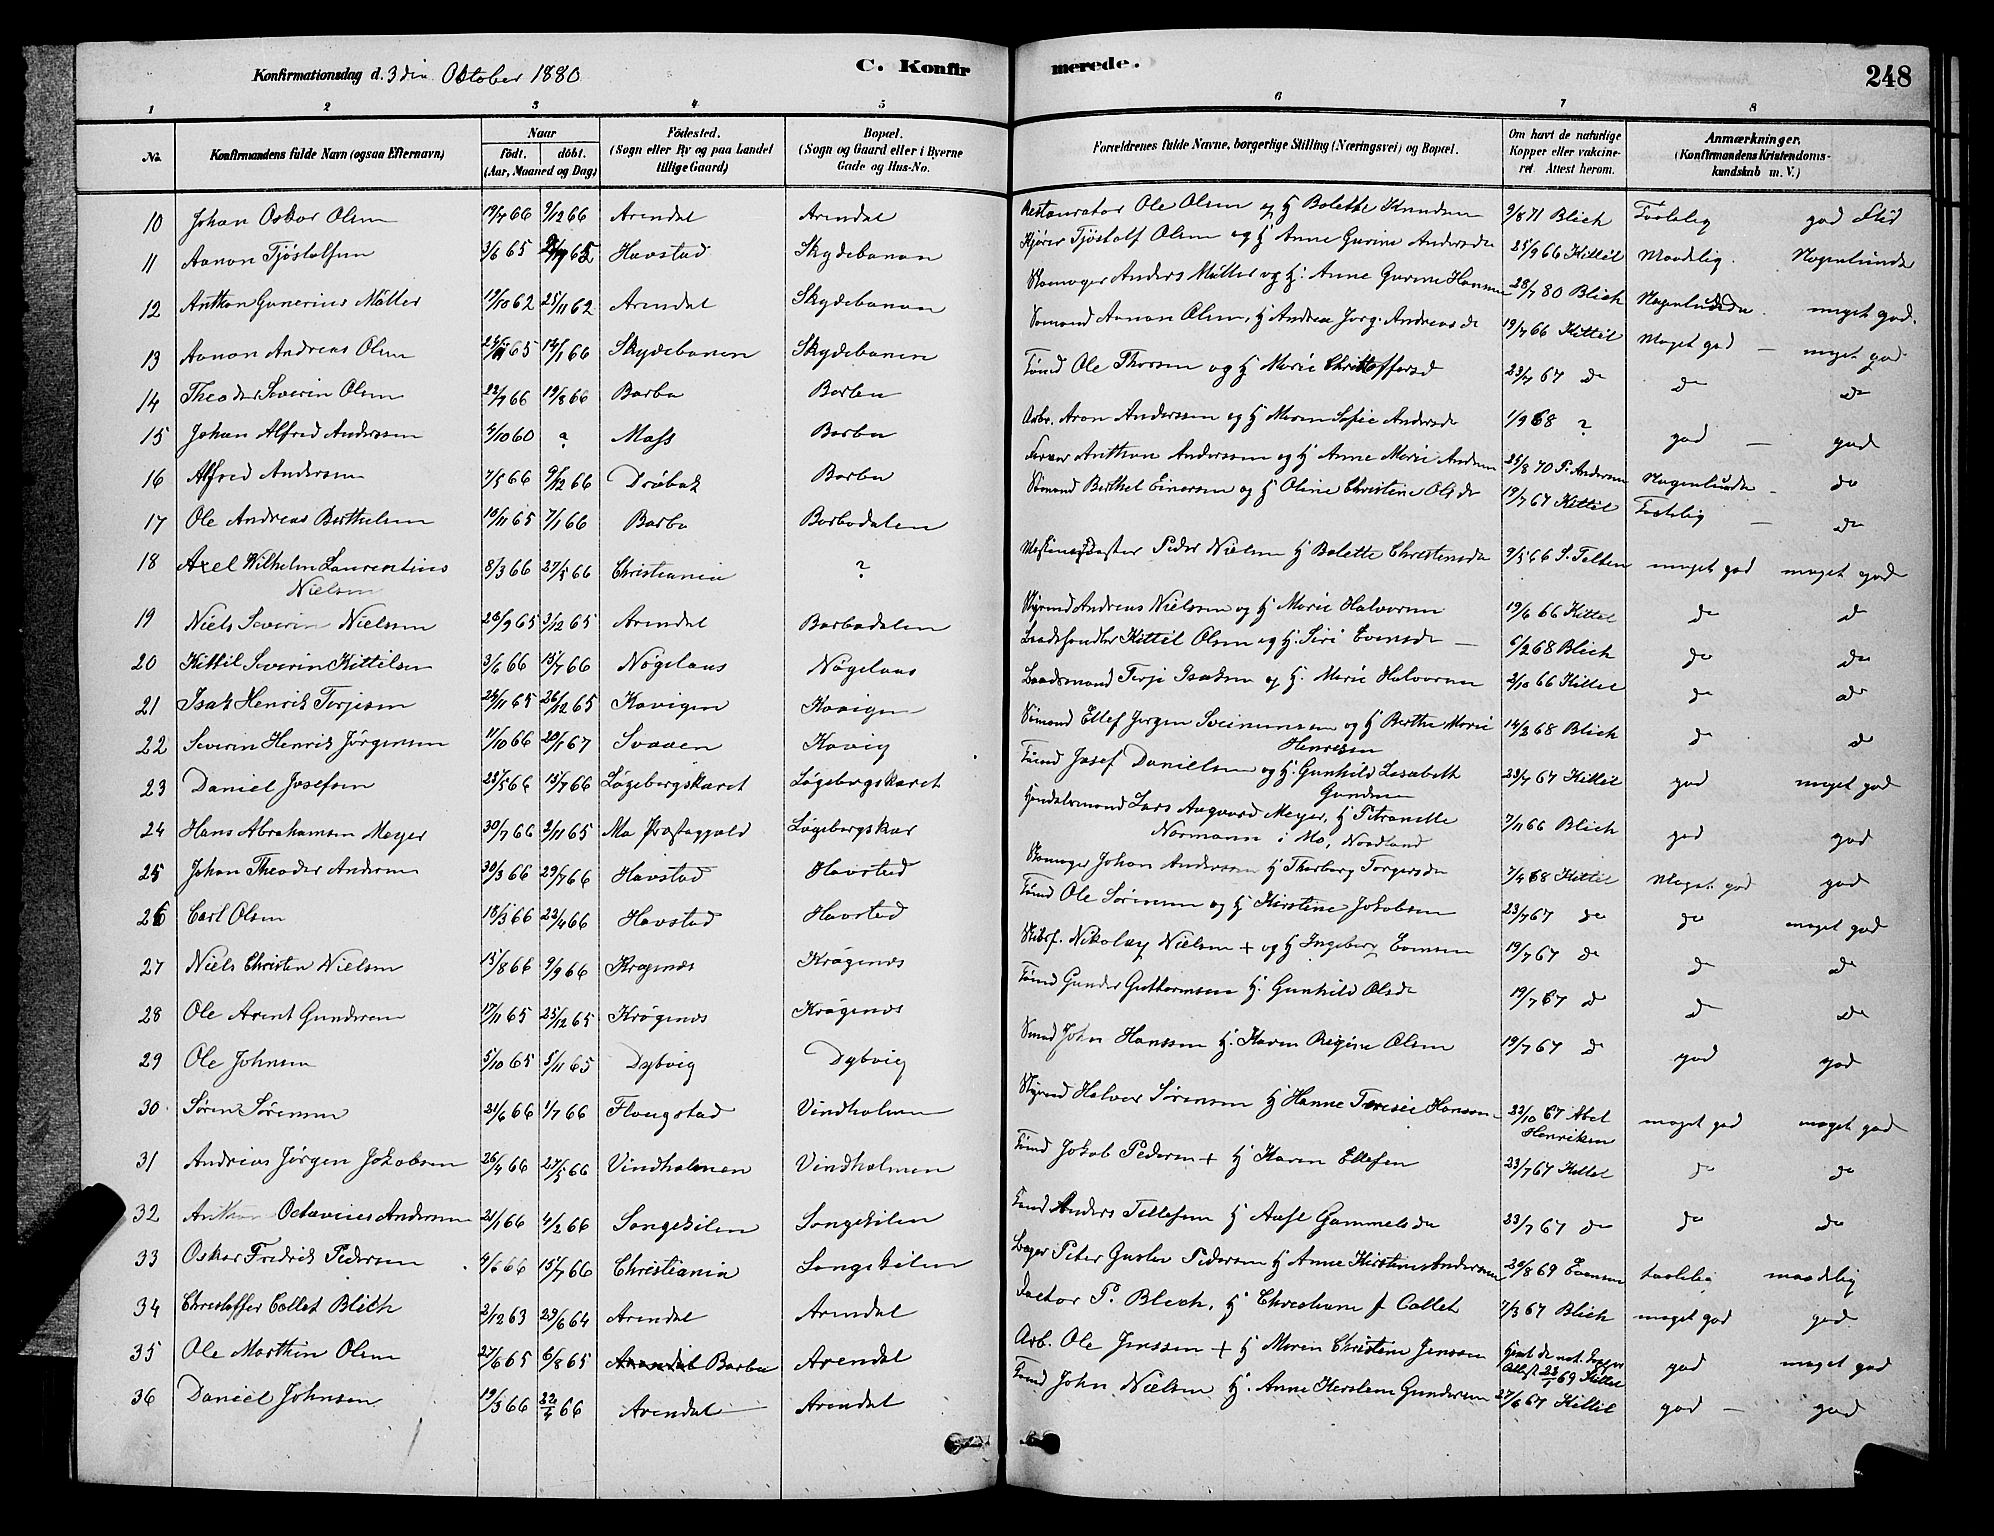 Konfirmationsdag d. 3die Oktober 1880
C. Konfirmerede.
248
1 2 3 4 5 6 7 8
No.
Konfirmandens fulde Navn (ogsaa Efternavn)
Naar
födt. döbt.
(Aar, Maaned og Dag)
Födested.
(Sogn eller By og paa Landet
tillige Gaard)
Bopæl.
(Sogn og Gaard eller i Byerne
Gade og Hus-No.
Forældrenes fulde Navne, borgerlige Stilling (Næringsvei) og Bopæl.
Om havt de naturlige
Kopper eller vakcine-
ret Attest herom.
Anmærkninger.
(Konfirmandens Kristendoms-
kundskab m. V.)
10 Johan Oskar Olsen 19/7 66 9/12 66 Arendal Arendal Restauratør Ole Olsen og H Bolette Knudsen 9/8 71 Blich Taalelig god Flid
11 Aanon Tjöstolfsen 3/6 65 Havstad Skydebanen Kjörer Tjöstolf Olsen og H Anne Gurine Andersdr 25/9 66 Kittil Maadelig Nogenlunde
12 Anthon Gunerius Möller 19/10 62 25/11 62 Arendal Skydebanen Skomager Anders Möller og H. Anne Gurine Hansen 28/7 80 Blich Nogenlunde meget god.
13 Aanon Andreas Olsen 14/1 66 Skydebanen Skydebanen Sömand Aanon Olsen, H Andrea Jørg. Andreasdr 19/7 66 Kittil Meget god — meget god
14 Theodor Severin Olsen 22/7 66 19/8 66 Barbo Barbu Tömd Ole Thorsen og H Marie Christoffersd 23/7 67 do do do
15 Johan Alfred Andersen 4/10 60 ? Moss Barbu Arb. Aron Anderssen og H Maren Sofie Andersdr 1/9 68 ? god — god
16 Alfred Andersen 7/5 66 9/12 66 Dröbak Barbu Anthon Anderssen og H Anne Marie Andersen 25/8 70 P. Andersen Nogenlunde do
17 Ole Andreas Berthelsen 18/11 65 7/1 66 Barbo Barbodalen Sömand Berthel Einersen og H Oline Christine Olsdr 19/7 67 Kittil Taalelig — do
18 Axel Wilhelm Laurentius
Nielsen 8/3 66 27/5 66 Christiania ? Peder Nielsen H Bolette Christensdr 9/5 66 S. Telten meget god meget god
19 Niels Severin Nielsen 26/9 65 3/12 65 Arendal Barbodalen Styrmd Andreas Nielsen og H Marie Halvorsen 19/6 66 Kittel do do
20 Kittil Severin Kittilsen 3/6 66 15/7 66 Nøgelaas Nøgelaas Kittil Olsen og H. Siri Evensdr — 6/2 68 Blich do do
21 Isak Henrik Terjesen 24/11 65 26/12 65 Kavigen Kovigen Baadsmand Terje Isaksen og H. Marie Halvorsen 2/10 66 Kittil do do
22 Severin Henrik Jörgensen 11/10 66 20/1 67 Svaaen Kovig Sömand Ellef Jørgen Sveinunsen og H Berthe Marie
Henriksen 14/2 68 Blich do do
23 Daniel Josefsen 23/5 66 15/7 66 Løgebergskaret Løgebergskaret Tömd Josef Danielsen og H. Gunhild Lisabeth
Gundersen 23/7 67 Kittil god meget god
24 Hans Abrahamsen Meyer 30/7 66 2/11 65 Mo Præstegjeld Løgebergskar Handelsmand Lars Angaard Meyer, H Petronelle
Normann i Mo, Nordland 7/11 66 Blich god god
25 Johan Theodor Andersen 30/3 66 29/7 66 Havstad Havstad Skomager Johan Anderssen H Thorborg Torgersdr 7/4 68 Kittil Meget god god
26 Carl Olsen 18/3 66 22/4 66 Havstad Havstad Tömd Ole Sörensen og H Kirstine Jakobsen 23/7 67 do do meget god
27 Niels Christen Nielsen 15/8 66 9/9 66 Krøgenes Krøgenes Skibsf. Nikolay Nielsen + og H Ingeborg Evensen 19/7 67 do do do
28 Ole Arent Gundersen 17/11 65 25/12 65 Krøgenes Krøgenes Tömd Gunder Guttormsen H. Gunhild Olsdr 19/7 67 do do do
29 Ole Johnsen 5/10 65 5/11 65 Dybvig Dybvig Smed John Hanssen H. Karen Regine Olsen 19/7 67 do god god
30 Søren Sørensen 21/6 66 1/7 66 Flougstad Vindholmen Styrmd Halvor Sörensen H Hanne Teresie Hansen 23/10 67 Abel
Henriksen meget god meget god
31 Andreas Jørgen Jakobsen 26/4 66 27/5 66 Vindholmen Vindholmen Tömd Jakob Pedersen + H Karen Ellefsen 23/7 67 Kittel do do
32 Anthon Octavius Andersen 21/1 66 4/2 66 Songekilen Songekilen Tömd Anders Tellefsen H Aase Gammelsdr 23/7 67 do do do
33 Oskar Fredrik Pedersen 4/6 66 15/7 66 Christiania Songekilen Peter Gustav Pedersen H Anne Kirstine Andersen 20/8 69 Evensen taalelig maadelig
34 Christoffer Collet Blich 2/12 63 23/6 64 Arendal Arendal Doctor P. Blich, H Christiane f Collet 7/3 67 Blich meget god god
35 Ole Marthin Olsen 27/6 65 6/8 65 Arendal Barbu Arendal Arb. Ole Jenssen + H Maren Christine Jenssen Havt de nat. Kopper
Attest 23/1 69 Kittel god meget god
36 Daniel Johnsen 19/3 66 22/4 66 Arendal Arendal Tömd John Nielsen H. Anne Kirstine Gundersen 27/6 67 Kittil god — god